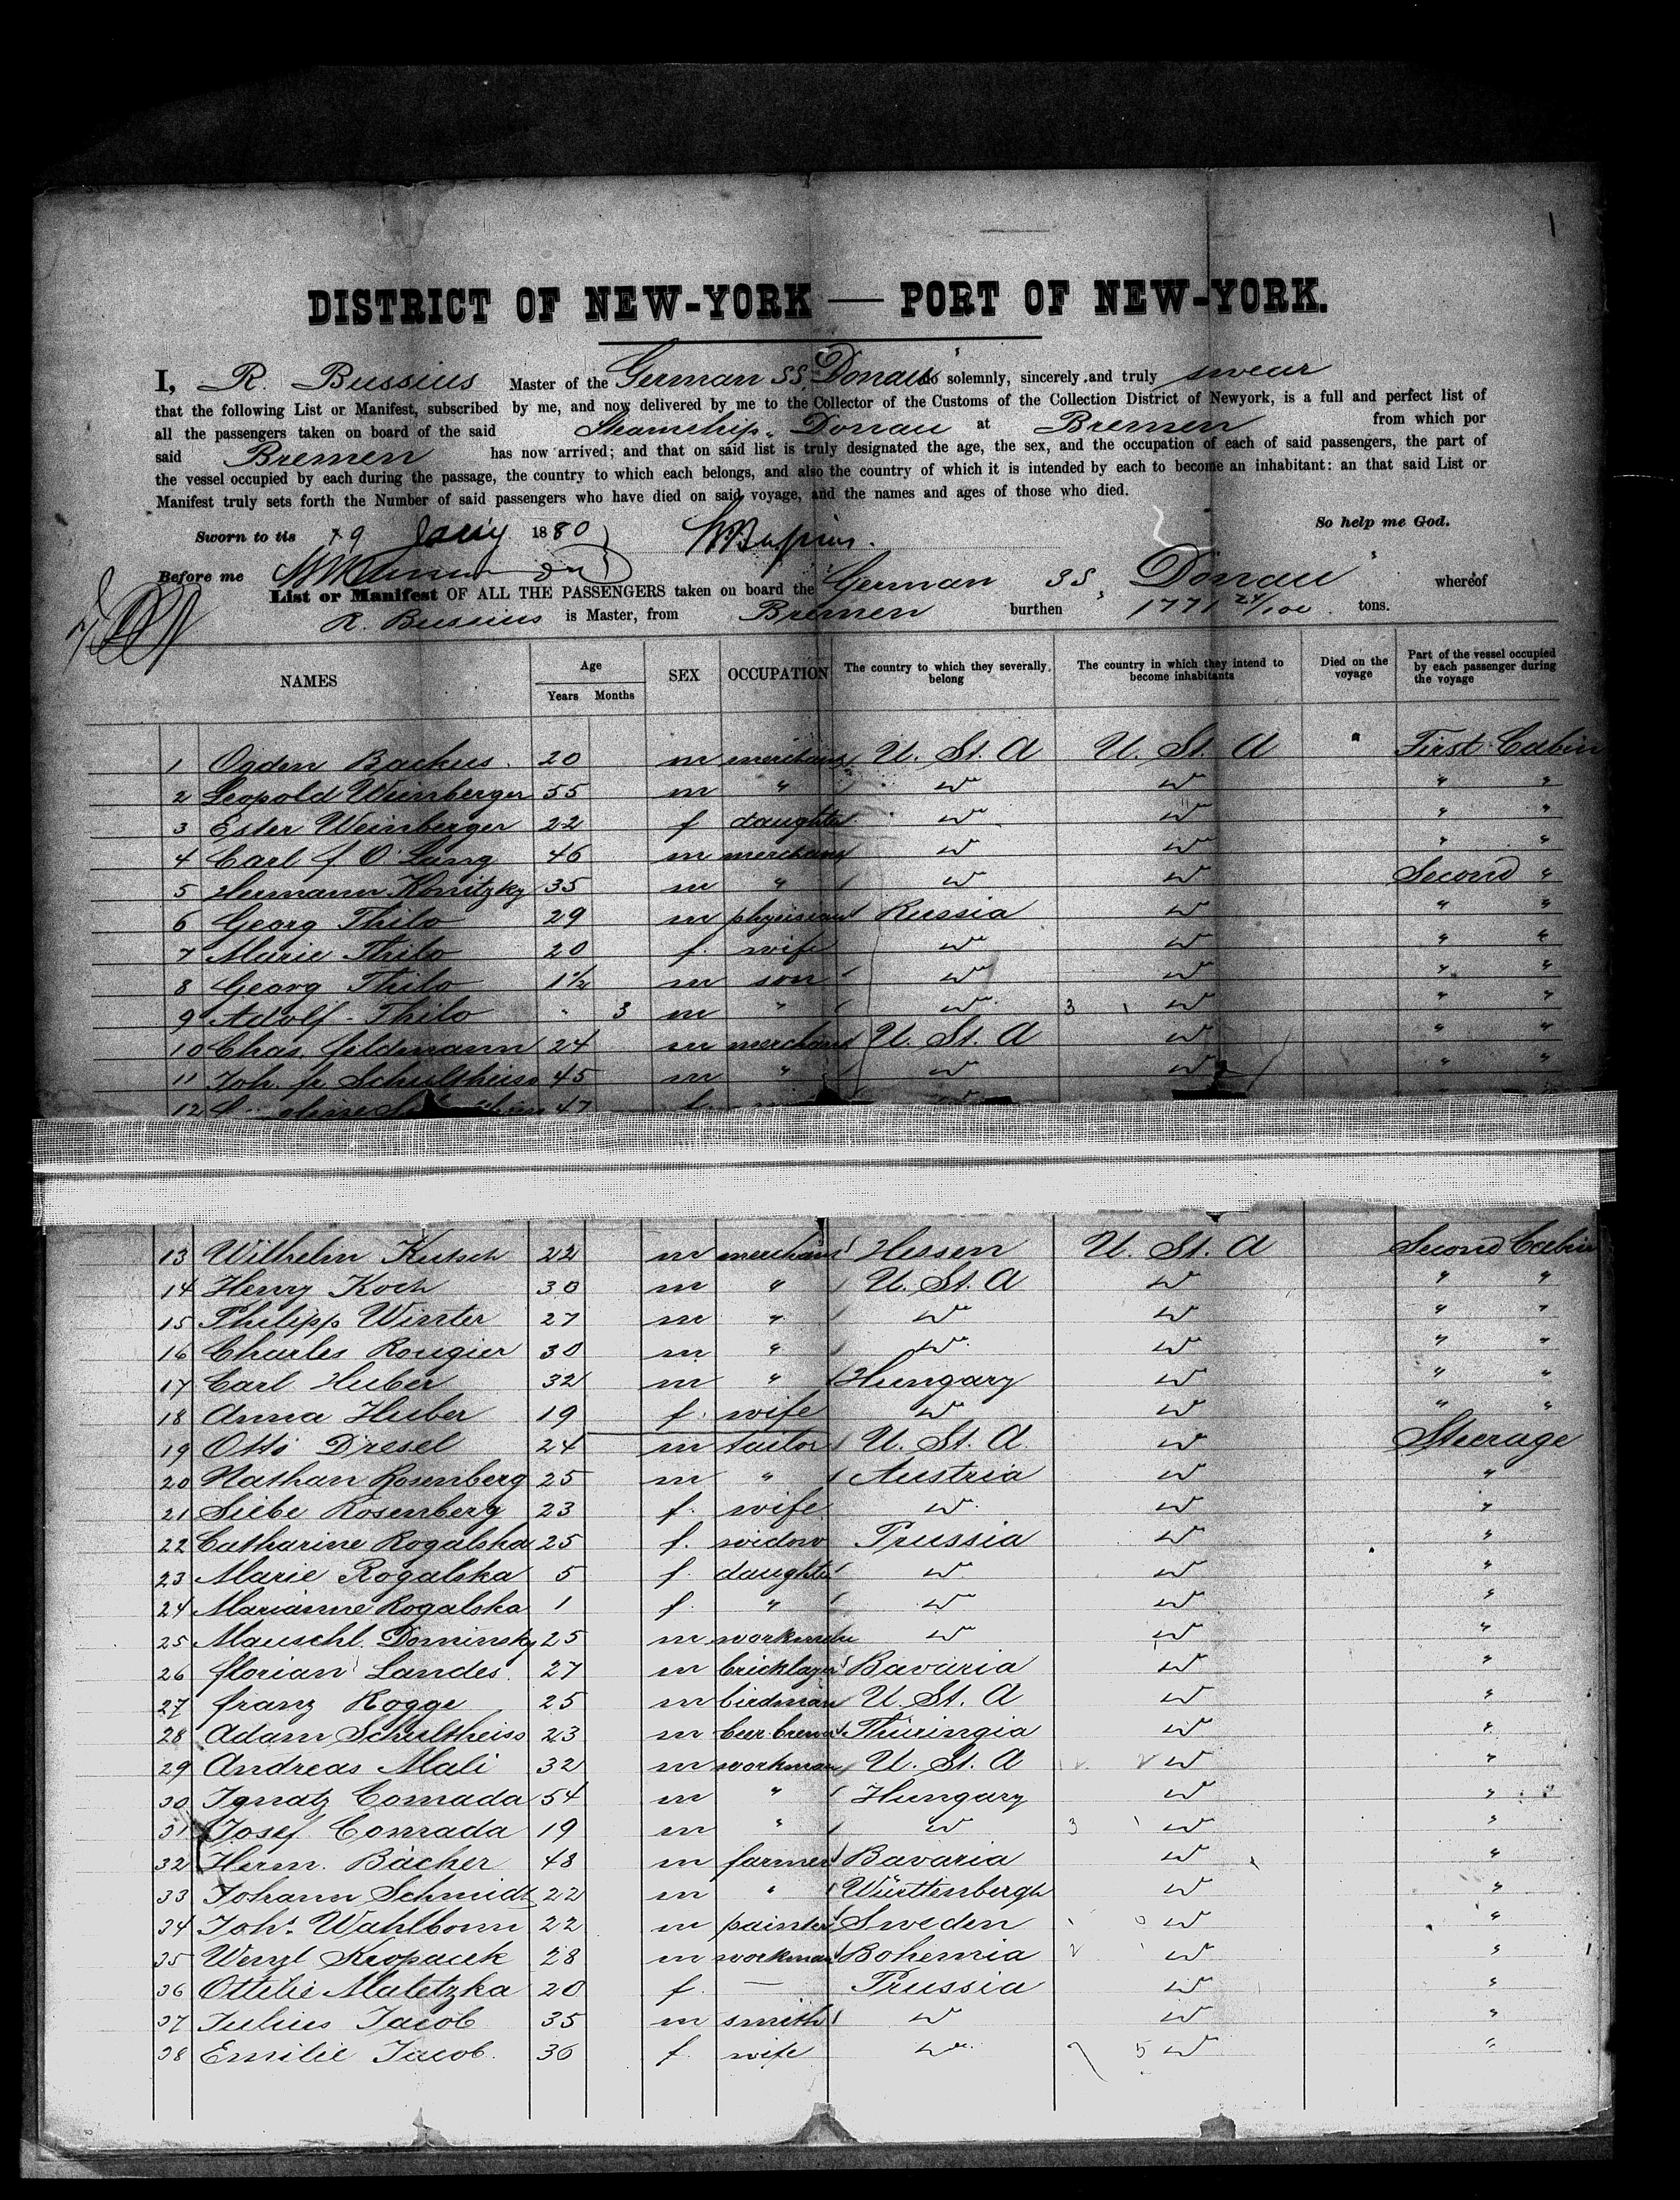 1
DISTRICT OF NEW-YORK — PORT OF NEW-YORK.
I, R. Bussius Master of the German SS. Donau do solemnly, sincerely and truly swear
that the following List or Manifest, subscribed by me, and now delivered by me to the Collector of the Customs of the Collection District of Newyork, is a full and perfect list of
all the passengers taken on board of the said Steamship Donau at Bremen from which por
said Bremen has now arrived; and that on said list is truly designated the age, the sex, and the occupation of each of said passengers, the part of
the vessel occupied by each during the passage, the country to which each belongs, and also the country of which it is intended by each to become an inhabitant: an that said List or
Manifest truly sets forth the Number of said passengers who have died on said voyage, and the names and ages of those who died.
So help me God.
Sworn to tis 19 Jany 1880 RBussius.
Before me
List or Manifest OF ALL THE PASSENGERS taken on board the German SS, Donau whereof
R. Bussius is Master, from Bremen burthen 1771 24/100. tons.
NAMES Age Years Months SEX OCCUPATION The country to which they severally, belong The country in which they intend to become inhabitants Died on the voyage Part of the vessel occupied by each passenger during the voyage
1 Ogden Backus. 20 m merchant U. St. A U. St. A First Cabin
2 Leopold Weinberger 55 m " " " " "
3 Ester Weinberger 22 f daughter " " " "
4 Carl f O' Lang 46 m merchant " " " "
5 Hermann Konitzky 35 m " " " Second "
6 Georg Thilo 29 m physician Russia " " "
7 Marie Thilo 20 f. wife " " " "
8 Georg Thilo 1½ m son " " " "
9 Adolf Thilo - 3 m " " 3 1 " " "
10 Chas. feldmann 24 m merchant U. St. A " " "
11 Joh. fr Schultheiss 45 m " " " " "
12 47
13 Wilhelm Kutsch 22 m merchant Hessen U. St. A Second Cabin
14 Henry Koch 30 m " U. St. A " " "
15 Philipp Winter 27 m " " " " "
16 Charles Rougier 30 m " " " " "
17 Carl Huber 32 m " Hungary " " "
18 Anna Huber 19 f. wife " " " "
19 Otto Dresel 24 m tailor U. St. A. " Steerage
20 Nathan Rosenberg 25 m " Austria " "
21 Siebe Rosenberg 23 f. wife " " "
22 Catharine Rogalska 25 f. widow Prussia " "
23 Marie Rogalska 5 f. daughter " " "
24 Marianne Rogalska 1 f. " " " "
25 Mauschl. Dominsky 25 m workman " " "
26 florian Landes. 27 m bricklayer Bavaria " "
27 franz Rogge 25 m birdman U. St. A " "
28 Adam Schultheiss 23 m beer brewer Thüringia " "
29 Andreas Mali 32 m workman U. St. A " "
30 Ignatz Comada 54 m " Hungary " "
31 Josef Comrada 19 m " " 3 1 " "
32 Herm. Bacher 48 m farmer Bavaria " "
33 Johann Schmidt 22 m " Württenbergh " "
34 Johs. Wahlbom 22 m painter Sweden " "
35 Wenzl Kropacek 28 m workman Bohemia " "
36 Ottilie Maletzka 20 f. — Prussia " "
37 Julius Jacob 35 m smith " " "
38 Emilie Jacob. 36 f. wife " 7 5 " "